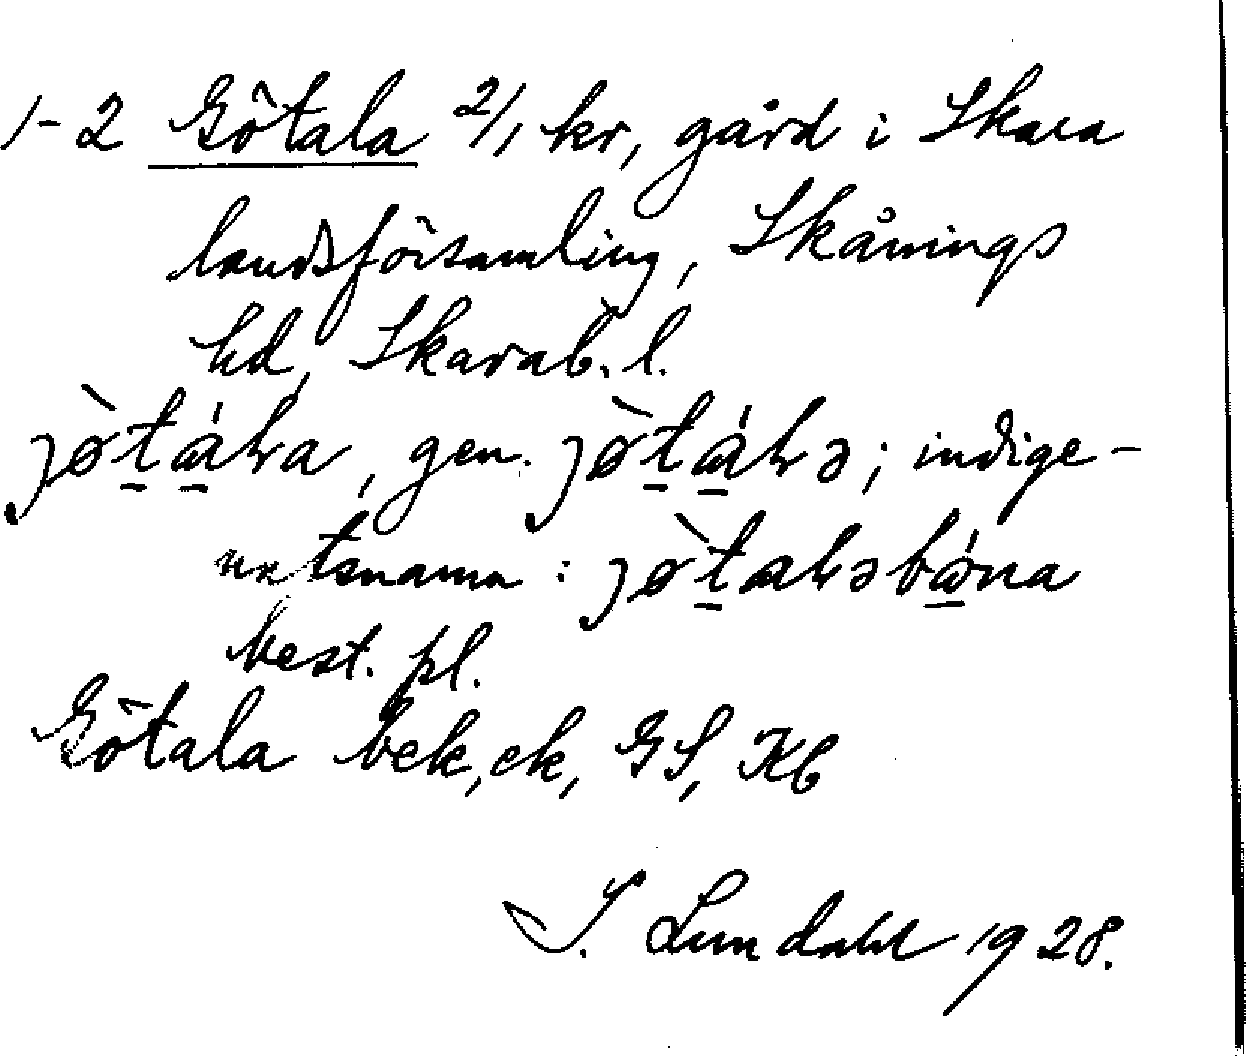 1-2 Götala 2/1 kr, gård i Skara
landsförsamling, Skånings
hd, Skarab. l.
gen. ; indige-
natsnamn :
best. pl.
Götala bek, ek, GS, Kb
I. Lundahl 1928.